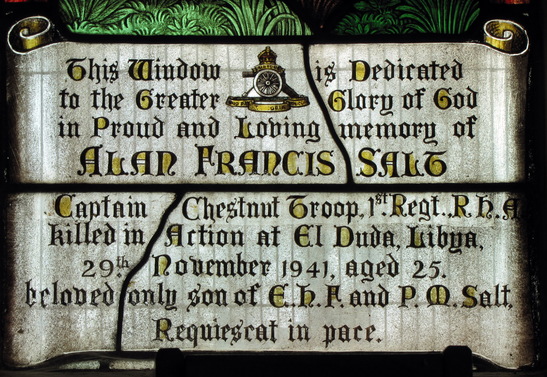 This Window is Dedicated
to the Greater Glory of God
in Proud and Loving memory of
ALAN FRANCIS SALT
Captain Chestnut Troop, 1st. Regt., R.H.A.
killed in Action at El Duda, Libya,
29th November 1941, aged 25.
beloved only son of E.H.F. and P.M. Salt.
Requiescat in pace.